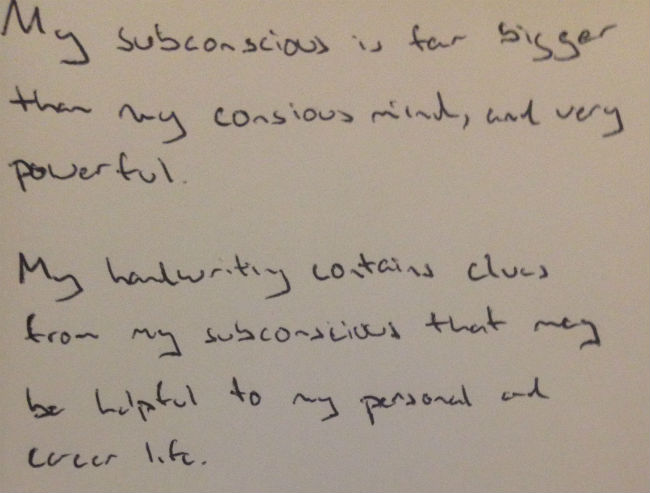 My subconscious is far bigger
than my consious mind, and very
powerful.
My handwriting contains clues
from my subconscious that may
be helpful to my personal and
career life.